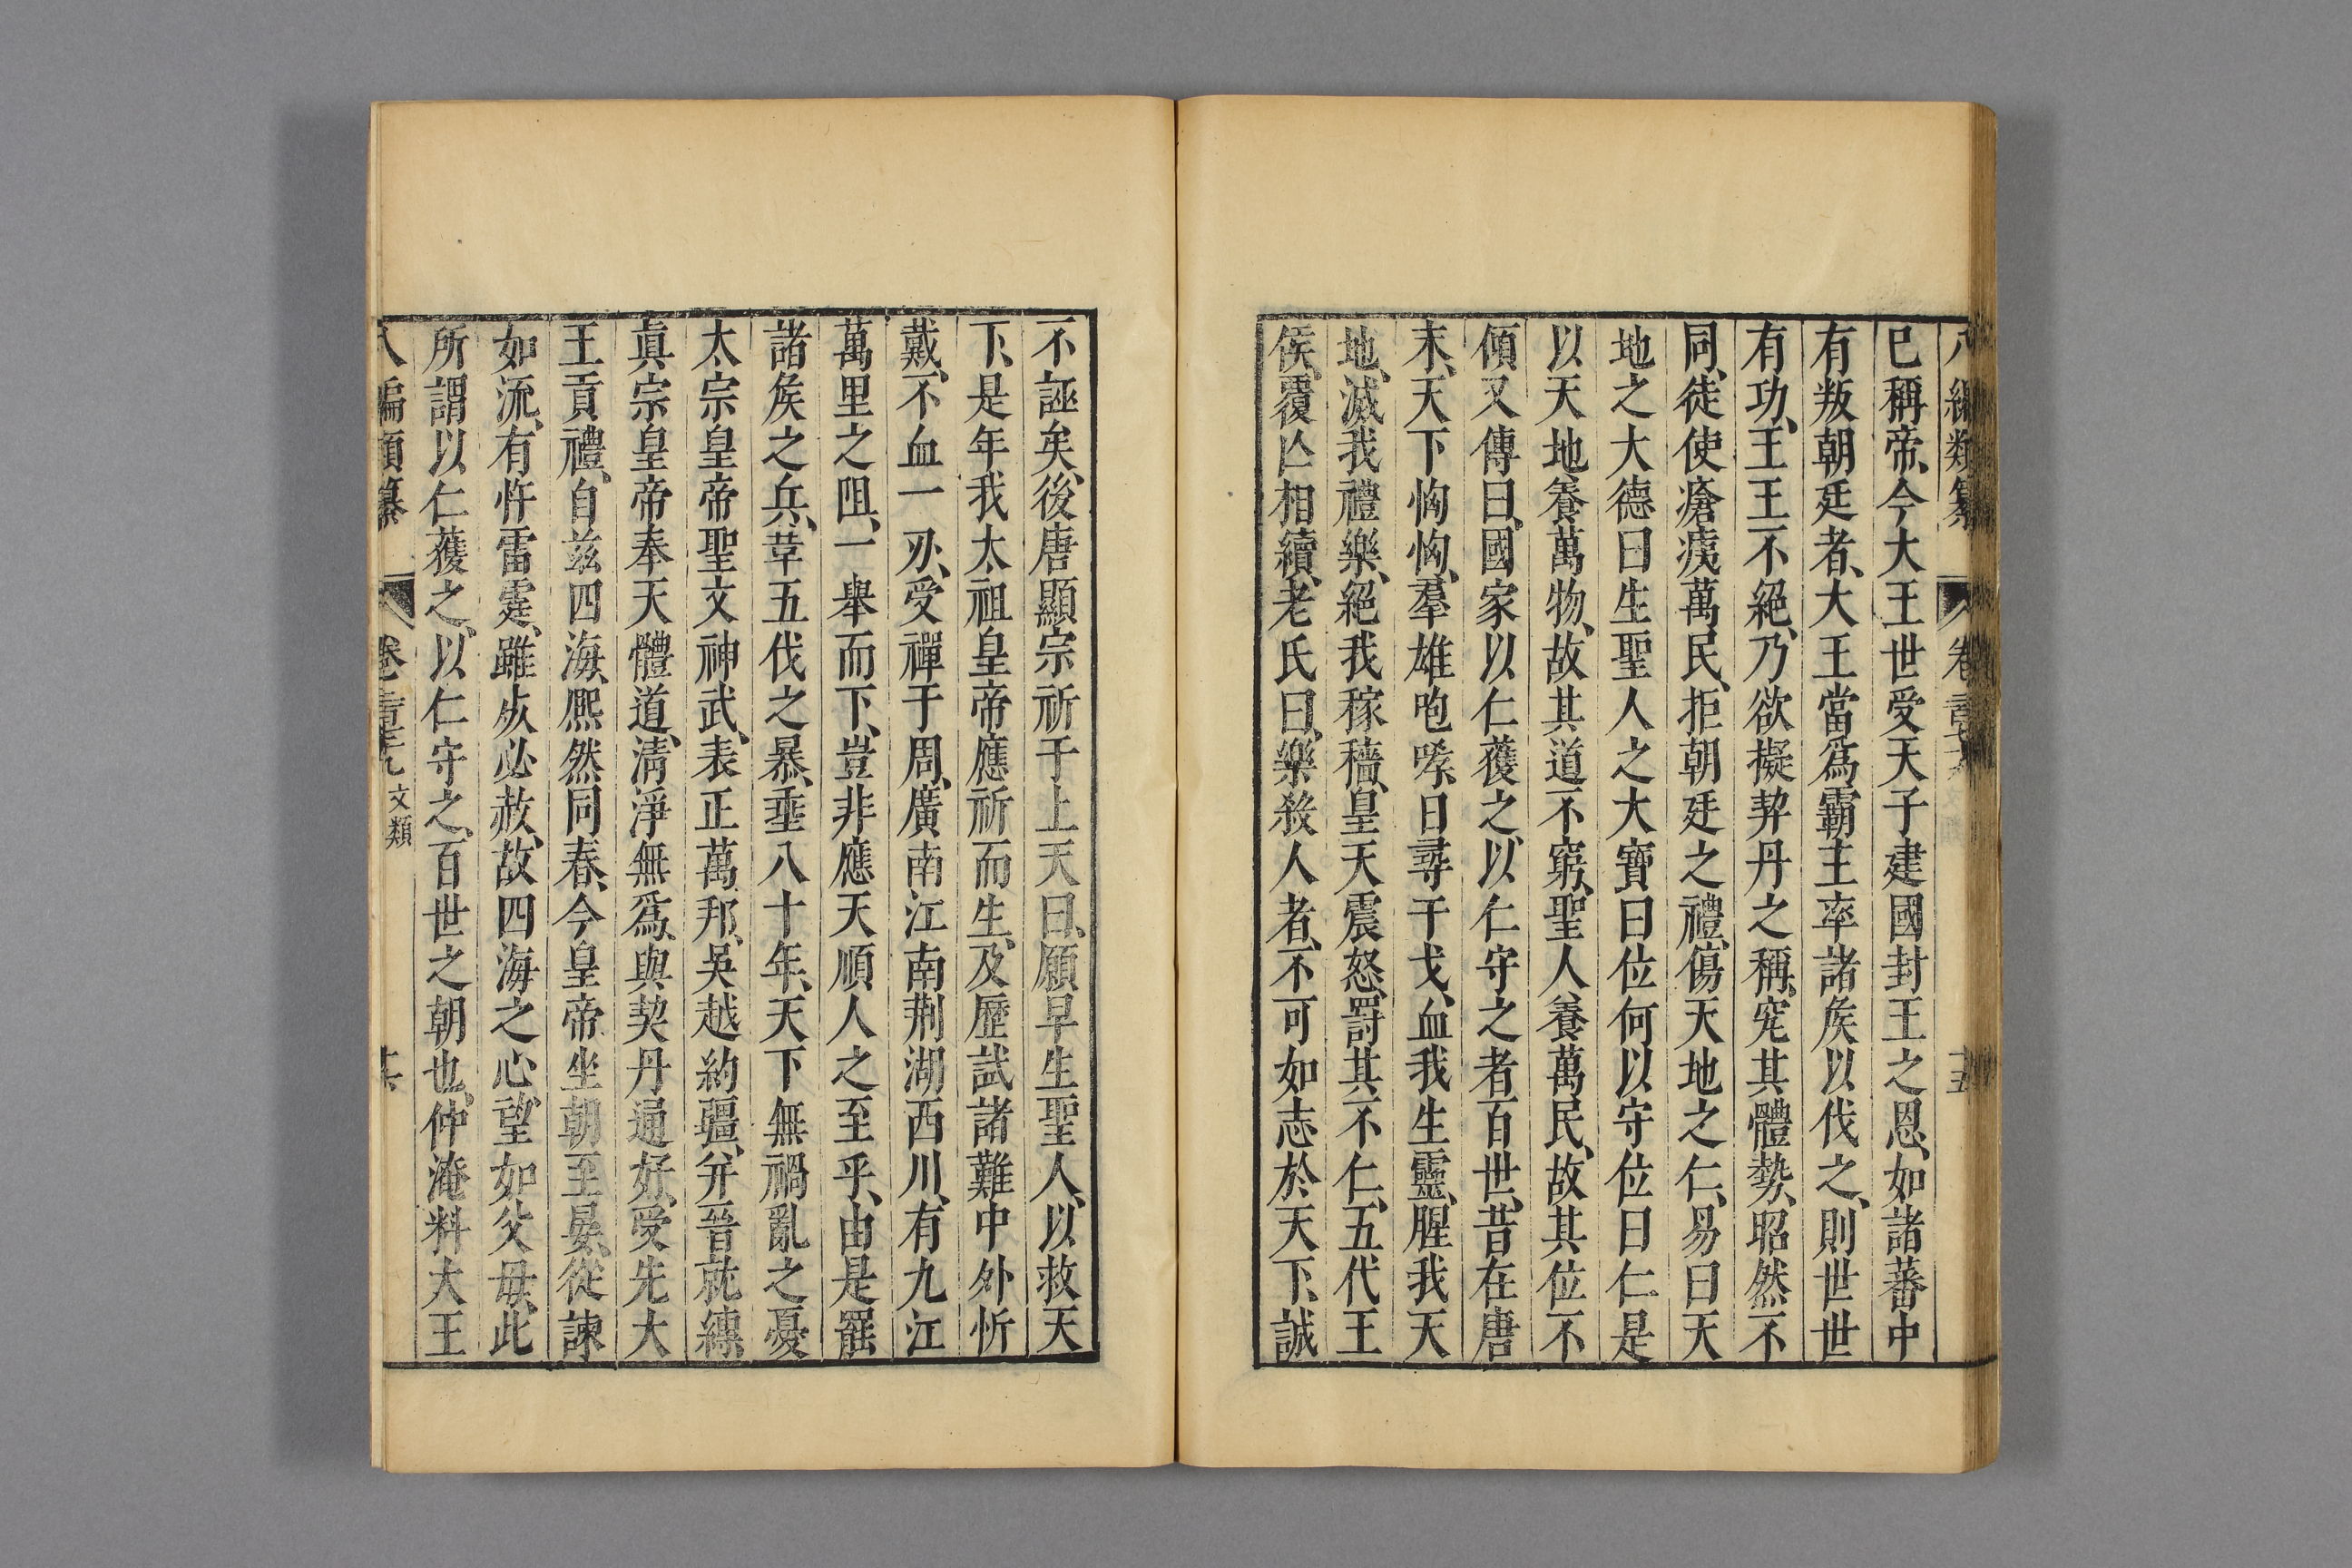 八編類纂 卷 十五
已稱帝、今大王世受天子建國封王之恩、如諸蕃中
有叛朝廷者、大王當爲霸主率諸矦以伐之、則世世
有功、王王不絕、乃欲擬契丹之稱、究其體勢、昭然不
同、徒使瘡痍萬民、拒朝廷之禮、傷天地之仁、易曰天
地之大德曰生聖人之大寶曰位何以守位曰仁是
以天地養萬物、故其道不窮、聖人養萬民、故其位不
傾又傳曰、國家以仁獲之、以仁守之者百世、昔在唐
末、天下恟恟、羣雄咆哮、日尋干戈、血我生靈、腥我天
地、滅我禮樂、絕我稼穡、皇天震怒、罸其不仁、五代王
侯、覆亾相續、老氏曰、樂殺人者、不可如志於天下、誠
不誣矣、後唐顯宗祈于上天曰、願早生聖人、以救天
下、是年我太祖皇帝應祈而生、及歷試諸難中外忻
戴、不血一刃、受禪于周、廣南江南荆湖西川、有九江
萬里之阻、一舉而下、豈非應天順人之至乎、由是罷
諸矦之兵、革五伐之暴、垂八十年、天下無禍亂之憂
太宗皇帝聖文神武、表正萬邦、吳越約疆、并晉就縛、
眞宗皇帝奉天體道、淸淨無爲、與契丹通好、受先大
王貢禮、自兹四海、熈然同春、今皇帝坐朝至晏、從諫
如流、有忤雷霆、雖必赦、故四海之心、望如父母、此
所謂以仁獲之、以仁守之、百世之朝也、仲淹料大王
八編類纂 卷 文類 十六